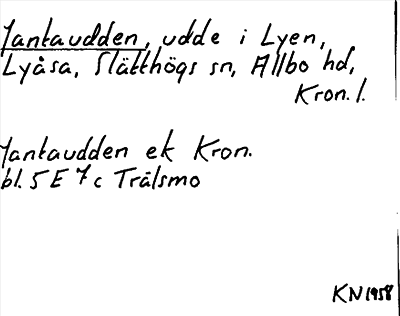 Jantaudden, udde i Lyen,
Lyåsa, Slätthögs sn, Allbo hd,
Kron. l.
Jantaudden ek Kron.
bl. 5 E 7 c Trälsmo
KN 1958